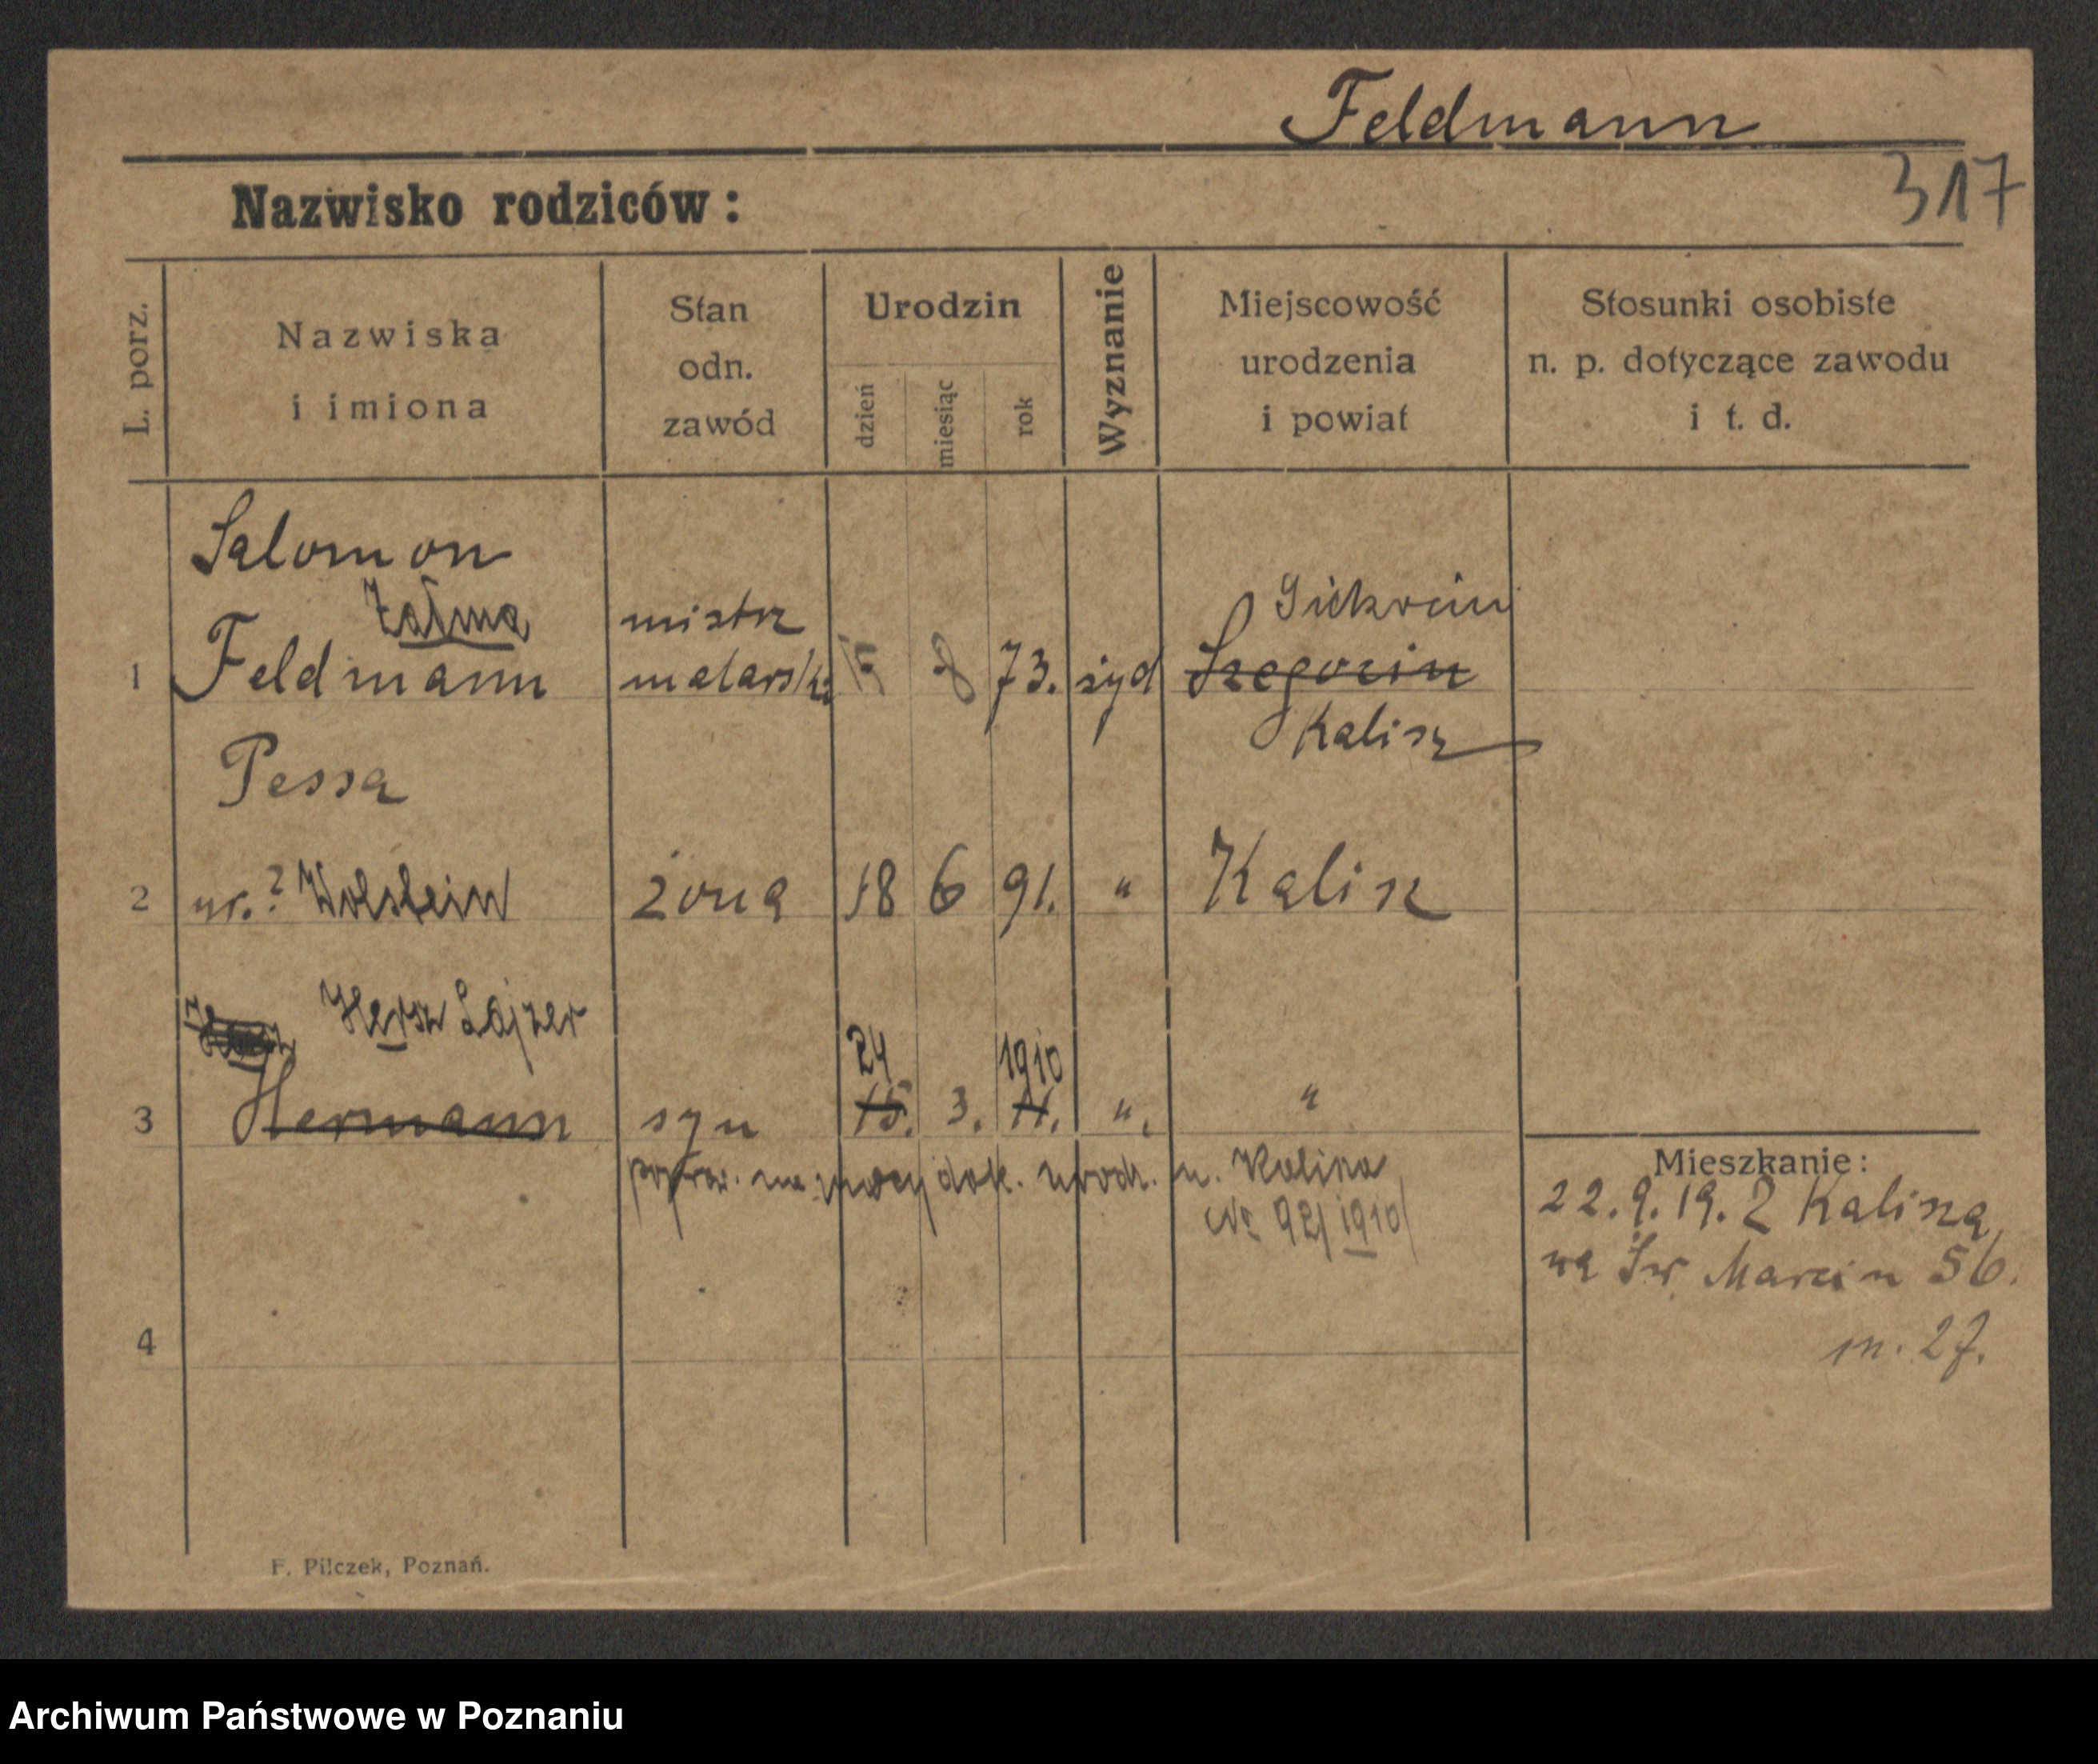 Feldmann
317
Nazwisko rodziców:
L. porz.
Nazwiska
i imiona
Stan
odn.
zawód
Urodzin
dzień
miesiąc
rok
Wyznanie
Miejscowość
urodzenia
i powiat
Stosunki osobiste
n. p. dotyczące zawodu
i t. d.
Salomon
Załma
1 Feldmann mistrz malarski 8 73. żyd Szegocin
Kalisz
Pessa
2 ur. ? Wolstein żona 18 6 91. " Kalisz
Hersz Lajzer
24 1910
3 Hermann syn 15. 3. 11. " "
popraw. na mocy dok. urodz. u. Kalisza
No 92/1910
Mieszkanie:
22.9.19. Z Kalisza
na Św. Marcin 56.
m. 27.
4
F. Pilczek, Poznań.
Archiwum Państwowe w Poznaniu